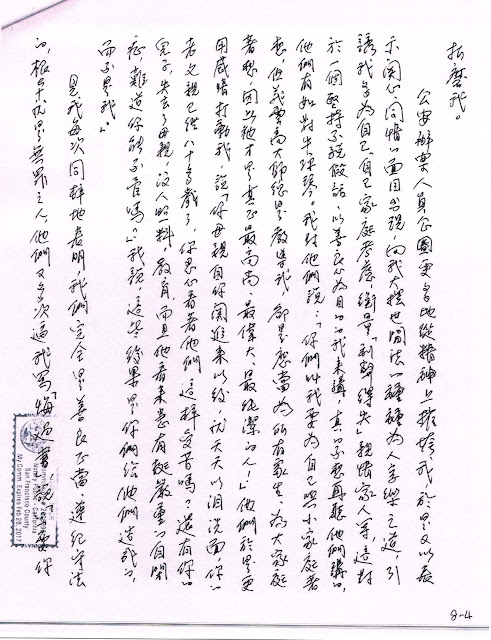 折磨我。
公安辦案人員企圖更多地從精神上摧垮我。於是又以表
示關心、同情的面目出現,向我大擺世間法的種種為人享樂之道,引
誘我多為自己、自己家庭考慮,衡量「利弊得失」、親情家人等,這對
於一個堅持不說假話、以善良心為目的的我來講,真的不想再聽他們講的,
他們有如對牛彈琴。我對他們說:「你們叫我要為自己與小家庭著
想,但義雲高大師總是教導我,都是應當為所有眾生、為大家庭
著想,因此他才是真正最高尚、最偉大、最純潔的人!」他們於是更
用感情打動我,說「你母親自你關進來以後,就天天以淚洗面,你的
老父親已經八十多歲了,你忍心看著他們這樣受苦嗎?還有你的
兒子,失去了母親,沒人照料、教育,而且他看來患有挺嚴重的自閉
症,難道你能不管嗎?」我說:這些後果是你們給他們造成的,
而不是我。」
是我每次同樣地表明,我們完全是善良正當、遵紀守法
的,根本就是無罪之人,他們又多次逼我寫「悔過書」,說「要你
Notary Public - California
San Francisco County
My Comm. Expires Feb 28, 2017
8-4